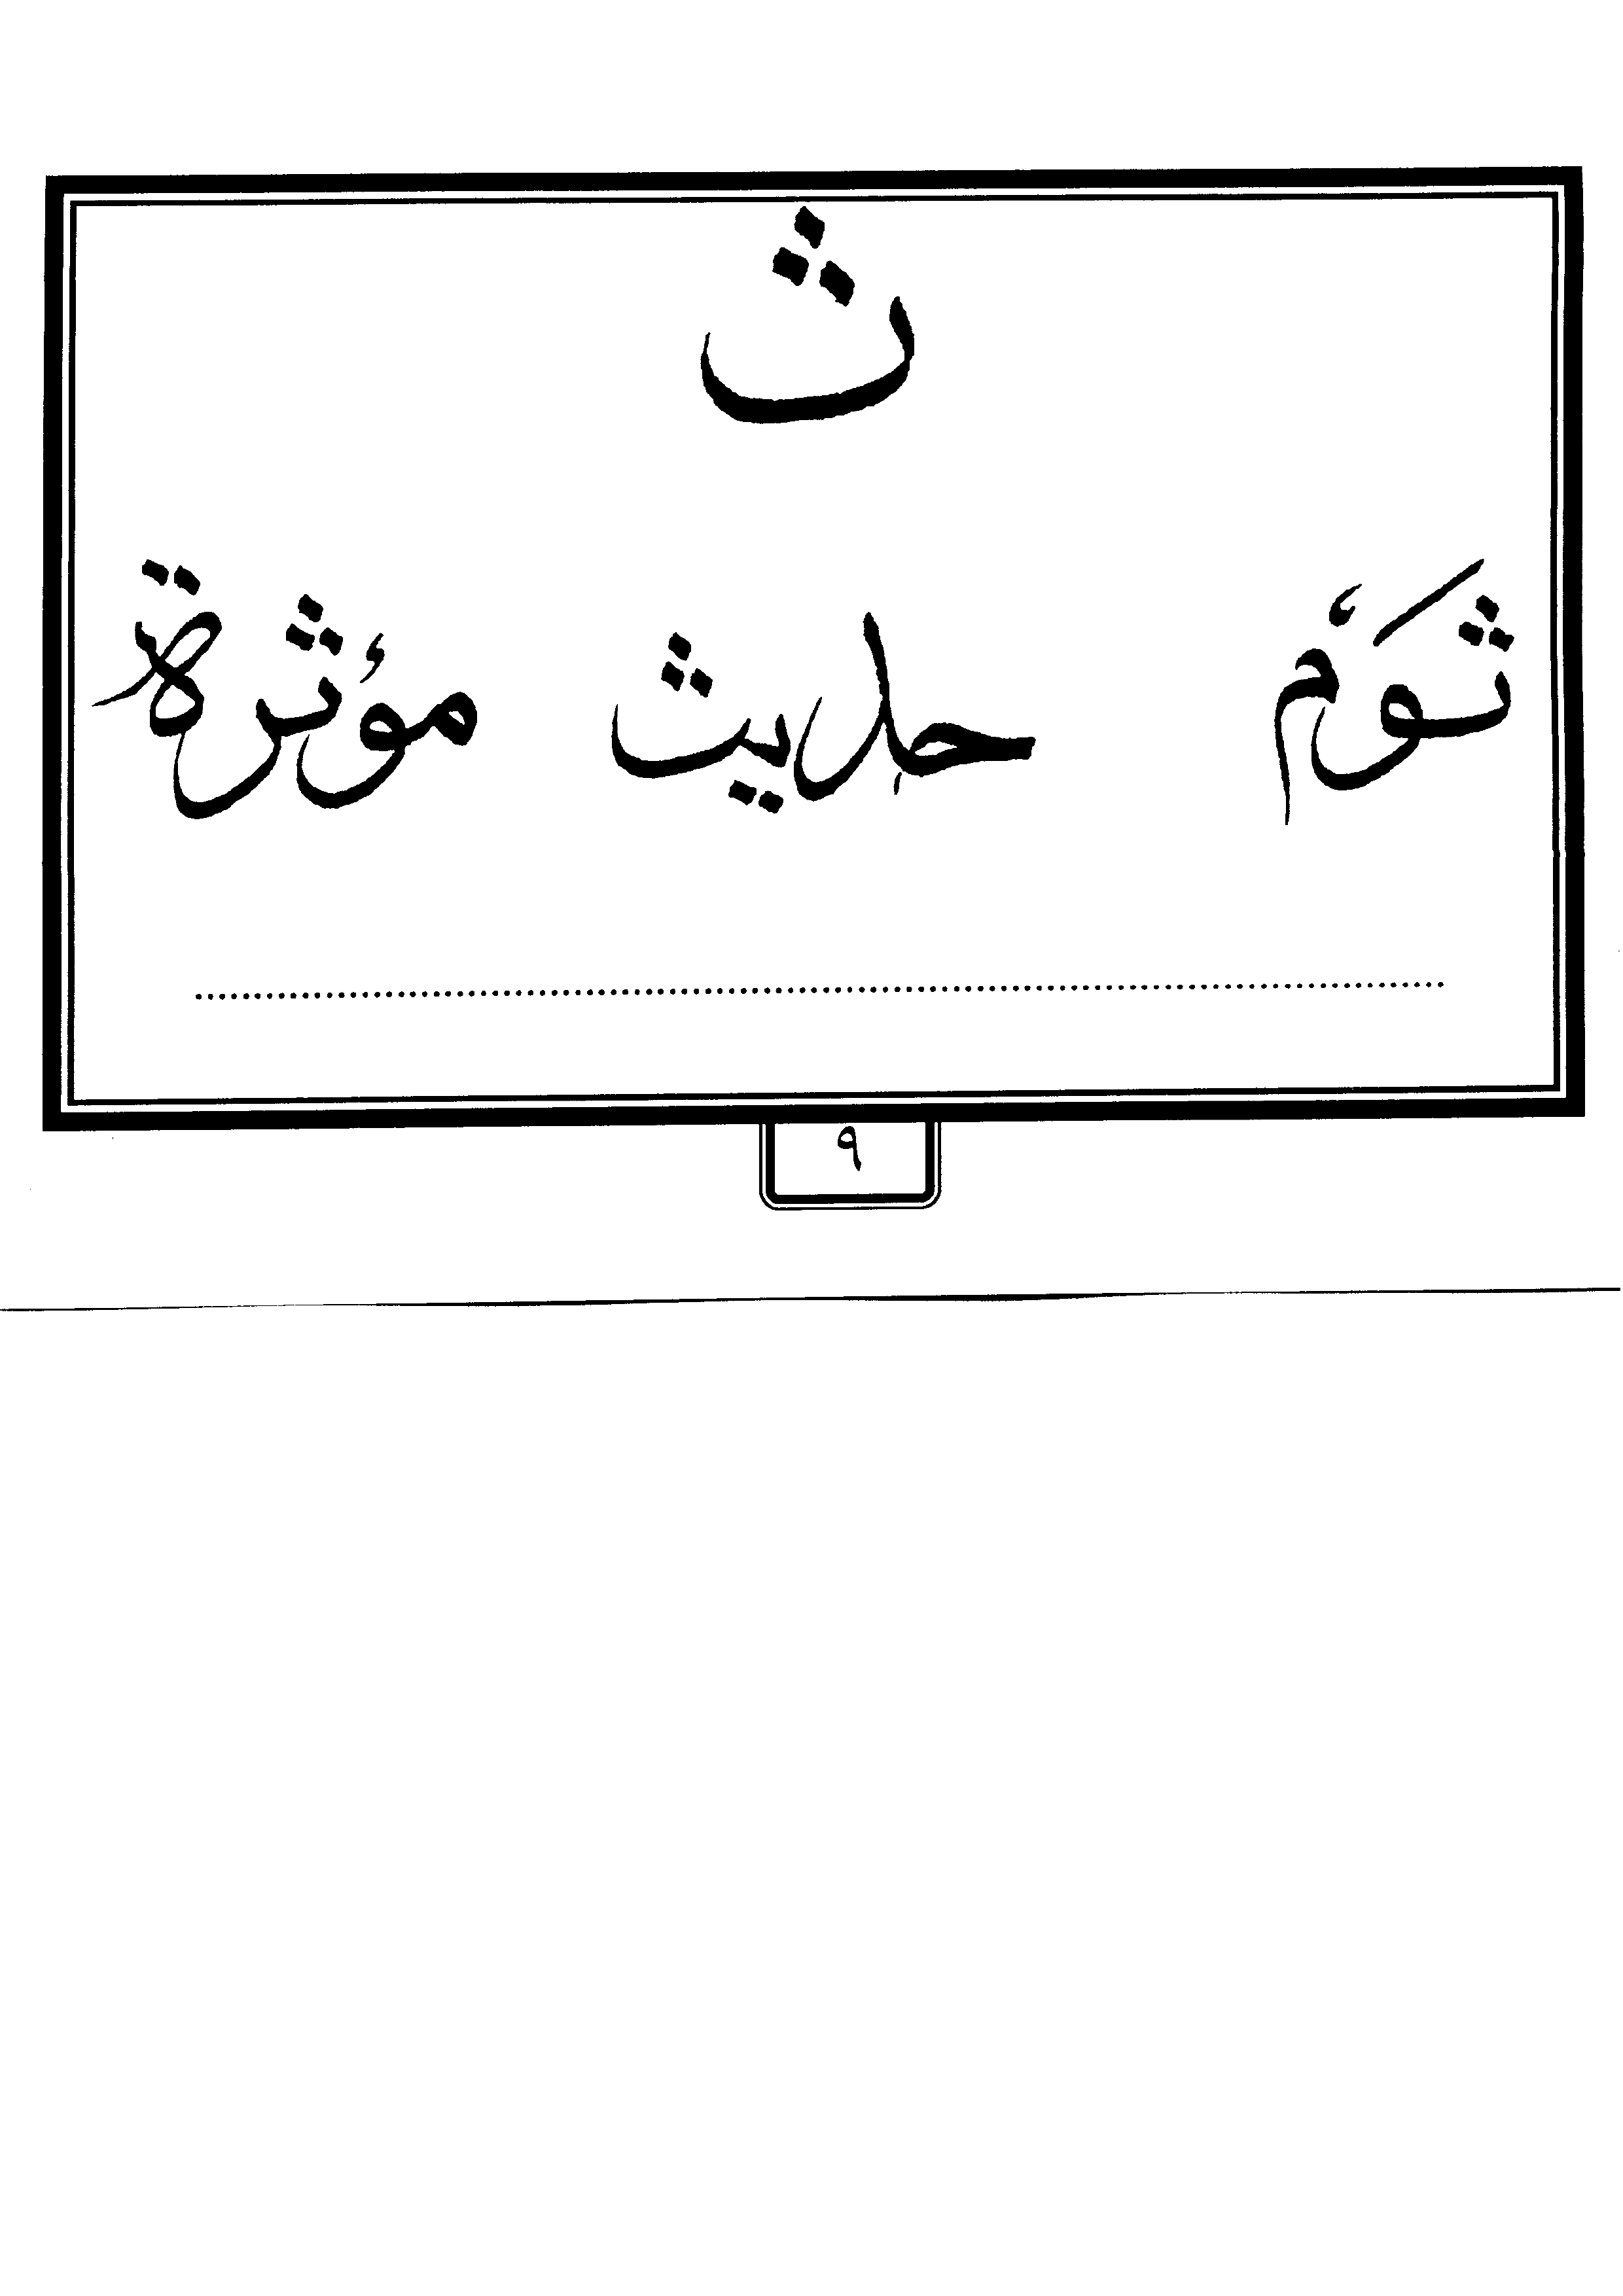 ث
ثوم حديث مؤثرة
٩